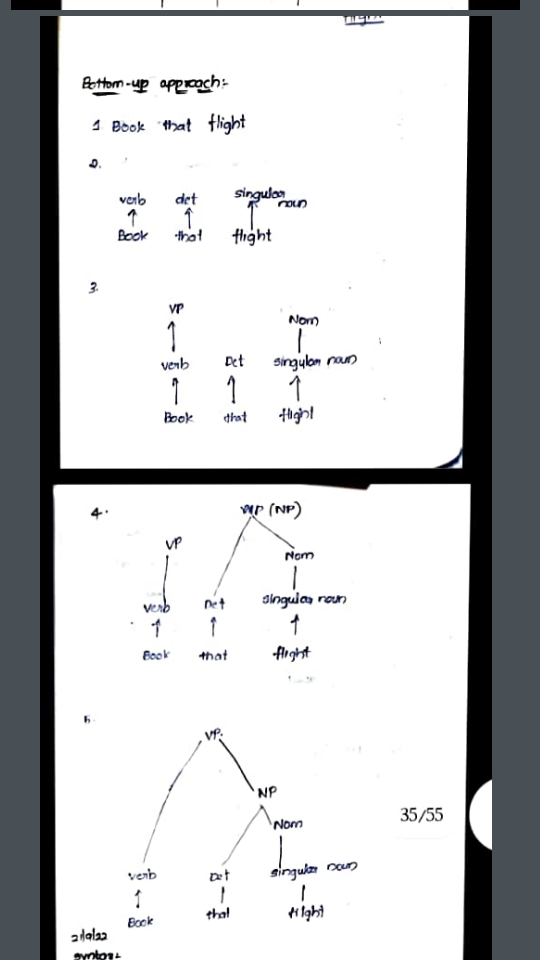 flight
Bottom-up approach:-
1. Book that flight
2.
verb det singular noun
Book that flight
3.
VP Nom
verb Det singular noun
Book that flight
4. (NP)
VP Nom
verb Det singular noun
Book that flight
5.
VP
NP
Nom
35/55
verb Det singular noun
Book that flight
21/9/22
syntax